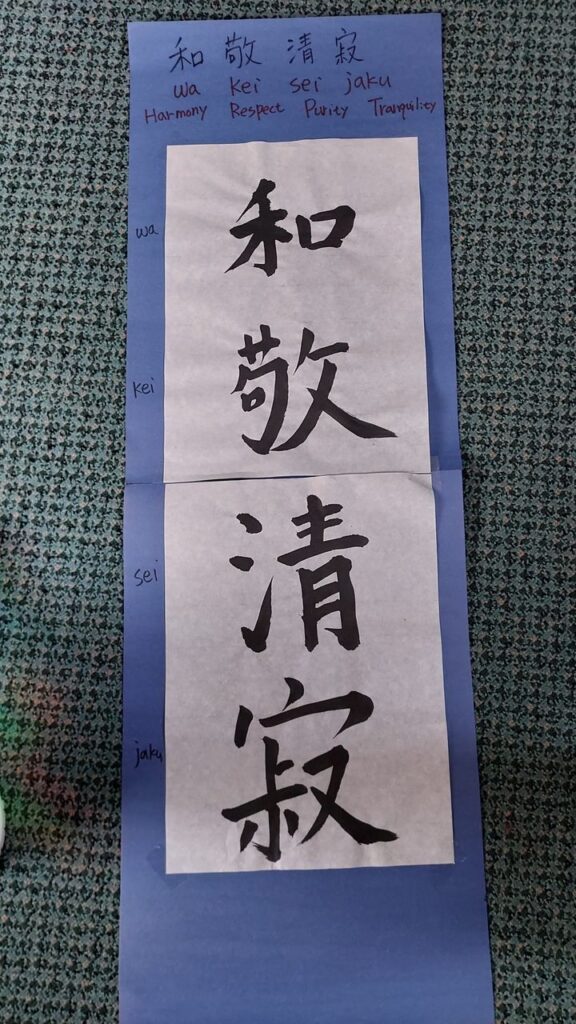 和 敬 清 寂
wa kei sei jaku
Harmony Respect Purity Tranquility
wa
和
kei
敬
sei
清
jaku
寂